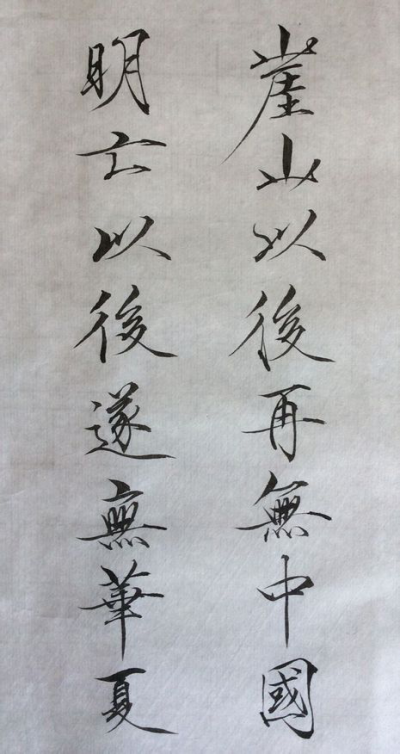 崖山以後再無中國
明亡以後遂無華夏